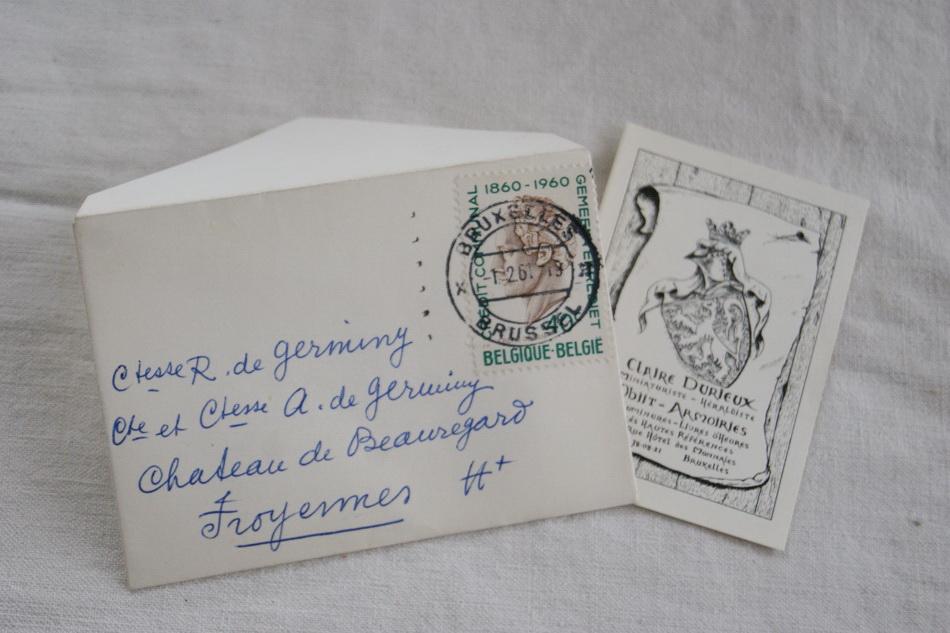 Ctesse R. de Germiny
Cte et Ctesse A. de Germiny
Chateau de Beauregard
Froyennes Ht
1860-1960
GEMEENTEKREDIET
CREDIT COMMUNAL
BRUXELLES
-1.2.61
BRUSSEL
BELGIQUE-BELGIË
CLAIRE DURIEUX
MINIATURISTE - HÉRALDISTE
OBIIT - ARMOIRIES
LUMINURES - LIVRES d'HEURES
des HAUTES RÉFÉRENCES
Rue HÔTEL des MONNAIES
38.08.21
Bruxelles